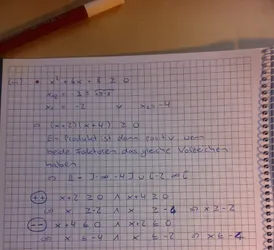 (iii) • x² + 6x + 8 ≥ 0
x₁,₂ = -3 ± √9-8
x₁ = -2 ∨ x₂ = -4
⇒ (x+2)(x+4) ≥ 0
Ein Produkt ist dann positiv wenn
beide Faktoren das gleiche Vorzeichen
haben.
⇒ L = ]-∞ -4] ∪ [-2 ∞[
(++) x+2 ≥ 0 ∧ x+4 ≥ 0
x ≥ -2 ∧ x ≥ -4 ⇔ x ≥ -2
(--) x+4 ≤ 0 ∧ x+2 ≤ 0
x ≤ -4 ∧ x ≤ -2 ⇔ x ≤ -4